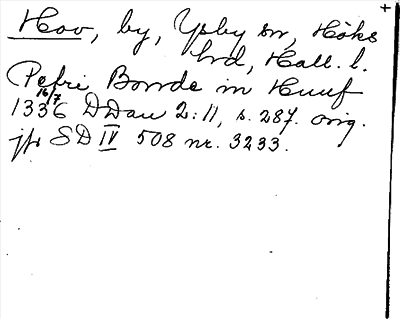 +
Hov, by, Ysby sn, Höks
hd, Hall. l.
Petri Bonde in Huuf
1336 16/7 DDan 2:11, s. 287. orig.
jfr SD IV 508 nr. 3233.